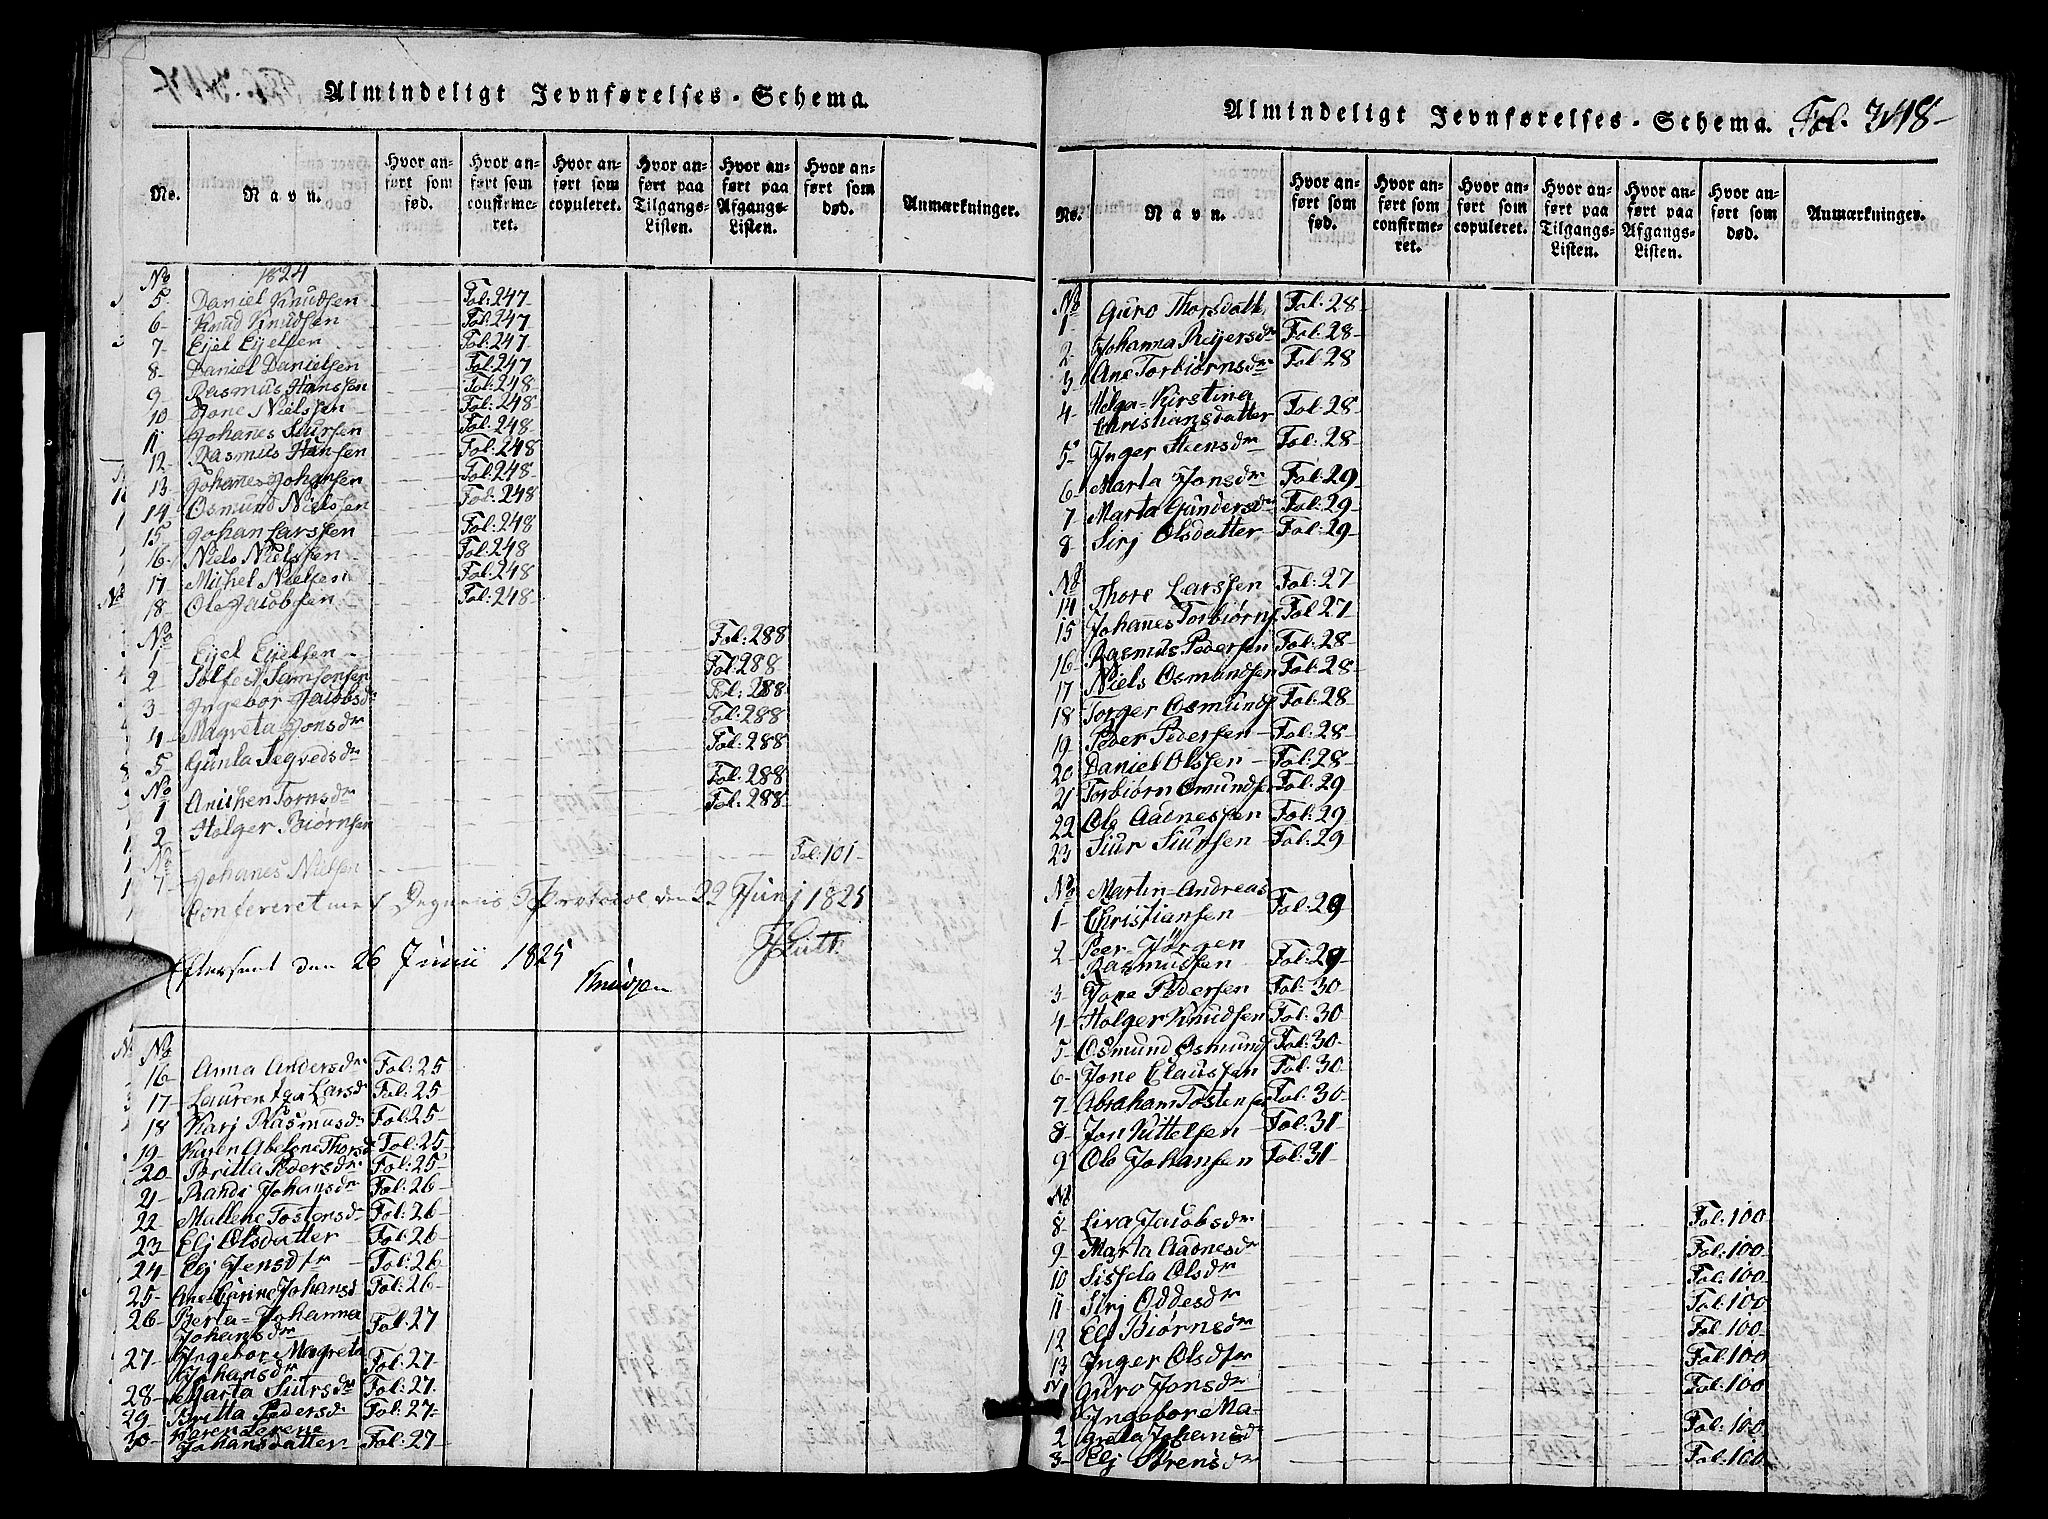 Almindeligt Jevnførelses-Schema.
No.
Navn.
Hvor anført som fød.
Hvor anført som confirmeret.
Hvor anført som copuleret.
Hvor anført paa Tilgangs-Listen.
Hvor anført paa Afgangs-Listen.
Hvor anført som død.
Anmærkninger.
No 1824
5 Daniel Knudsen Fol: 247
6 Knud Knudsen Fol: 247
7 Ejel Ejelsen Fol: 247
8 Daniel Danielsen Fol: 247
9 Rasmus Hanssøn Fol: 248
10 Jone Nielssen Fol: 248
11 Johanes Siursen Fol: 248
12 Rasmus Hansen Fol: 248
13 Johanes Johansen Fol: 248
14 Osmund Nielssen Fol: 248
15 Johan Larssen Fol: 248
16 Niels Nielssen Fol: 248
17 Michel Nielsen Fol: 248
18 Ole Jacobsen Fol: 248
No
1 Ejel Ejelsen Fol: 288
2 Solfest Samsonsen Fol: 288
3 Ingebor Jacobsdr Fol: 288
4 Magreta Jonsdr Fol: 288
5 Gunla Segvedsdr Fol: 288
No
1 Anichen Tornsdr Fol: 288
2 Holger Biørnsen Fol: 288
No
7 Johanes Nielsen Fol: 101
Confereret med Degnens Protocol den 22 Junj 1825
Efterseet den 26 Junii 1825
Knudsen
No
16 Anna Andersdr Fol: 25
17 Laurentza Larsdr Fol: 25
18 Karj Rasmusdr Fol: 25
19 Karen Abelone Thorsd Fol: 25
20 Britta Pedersdr Fol: 25
21 Randi Johansdr Fol: 26
22 Mallene Tostensdr Fol: 26
23 Elj Olsdatter Fol: 26
24 Elj Jensdtr Fol: 26
25 Ane Carine Johansd Fol: 26
26 Berta-Johanna
Johansdr Fol: 27
27 Ingebor Magreta
Johansdr Fol: 27
28 Marta Siursdr Fol: 27
29 Britta Pedersdr Fol: 27
30 Karen Serene
Johansdatter Fol: 27
Almindeligt Jevnførelses-Schema. Fol. 348
No.
Navn.
Hvor anført som fød.
Hvor anført som confirmeret.
Hvor anført som copuleret.
Hvor anført paa Tilgangs-Listen.
Hvor anført paa Afgangs-Listen.
Hvor anført som død.
Anmærkninger.
No
1 Guro Thorsdatt Fol: 28
2 Johanna Reijersdr Fol: 28
3 Ane Torbiørnsdr Fol: 28
4 Helga-Kirstina
Christiansdatter Fol: 28
5 Inger Steensdr Fol: 28
6 Marta Jonsdr Fol: 29
7 Marta Gundersdr Fol: 29
8 Sirj Olsdatter Fol: 29
No
14 Thore Larssen Fol: 27
15 Johanes Torbiørns Fol: 27
16 Rasmus Pedersen Fol: 28
17 Niels Osmundsen Fol: 28
18 Torger Osmunds Fol: 28
19 Peder Pedersen Fol: 28
20 Daniel Olssen Fol: 28
21 Torbiørn Omundsen Fol: 29
22 Ole Aadnessen Fol: 29
23 Siur Siursen Fol: 29
No Martin-Andreas
1 Christiansen Fol: 29
2 Peer-Jörgen
Rasmudsen Fol: 29
3 Jone Pedersen Fol: 30
4 Holger Knudsen Fol: 30
5 Osmund Osmunds Fol: 30
6 Jone Claussen Fol: 30
7 Abraham Tostensen Fol: 30
8 Jon Kittelsen Fol: 31
9 Ole Johansen Fol: 31
No
8 Liva Jacobsdr Fol: 100
9 Marta Aadnesdr Fol: 100
10 Sissela Olsdr Fol: 100
11 Sirj Oddesdr Fol: 100
12 Elj Biørnsdr Fol: 100
13 Inger Olsdtr Fol: 100
1 Guro Jonsdr Fol: 100
Ingebor Ma-
2 greta Johansd Fol: 100
3 Elj Sørensdr Fol: 100